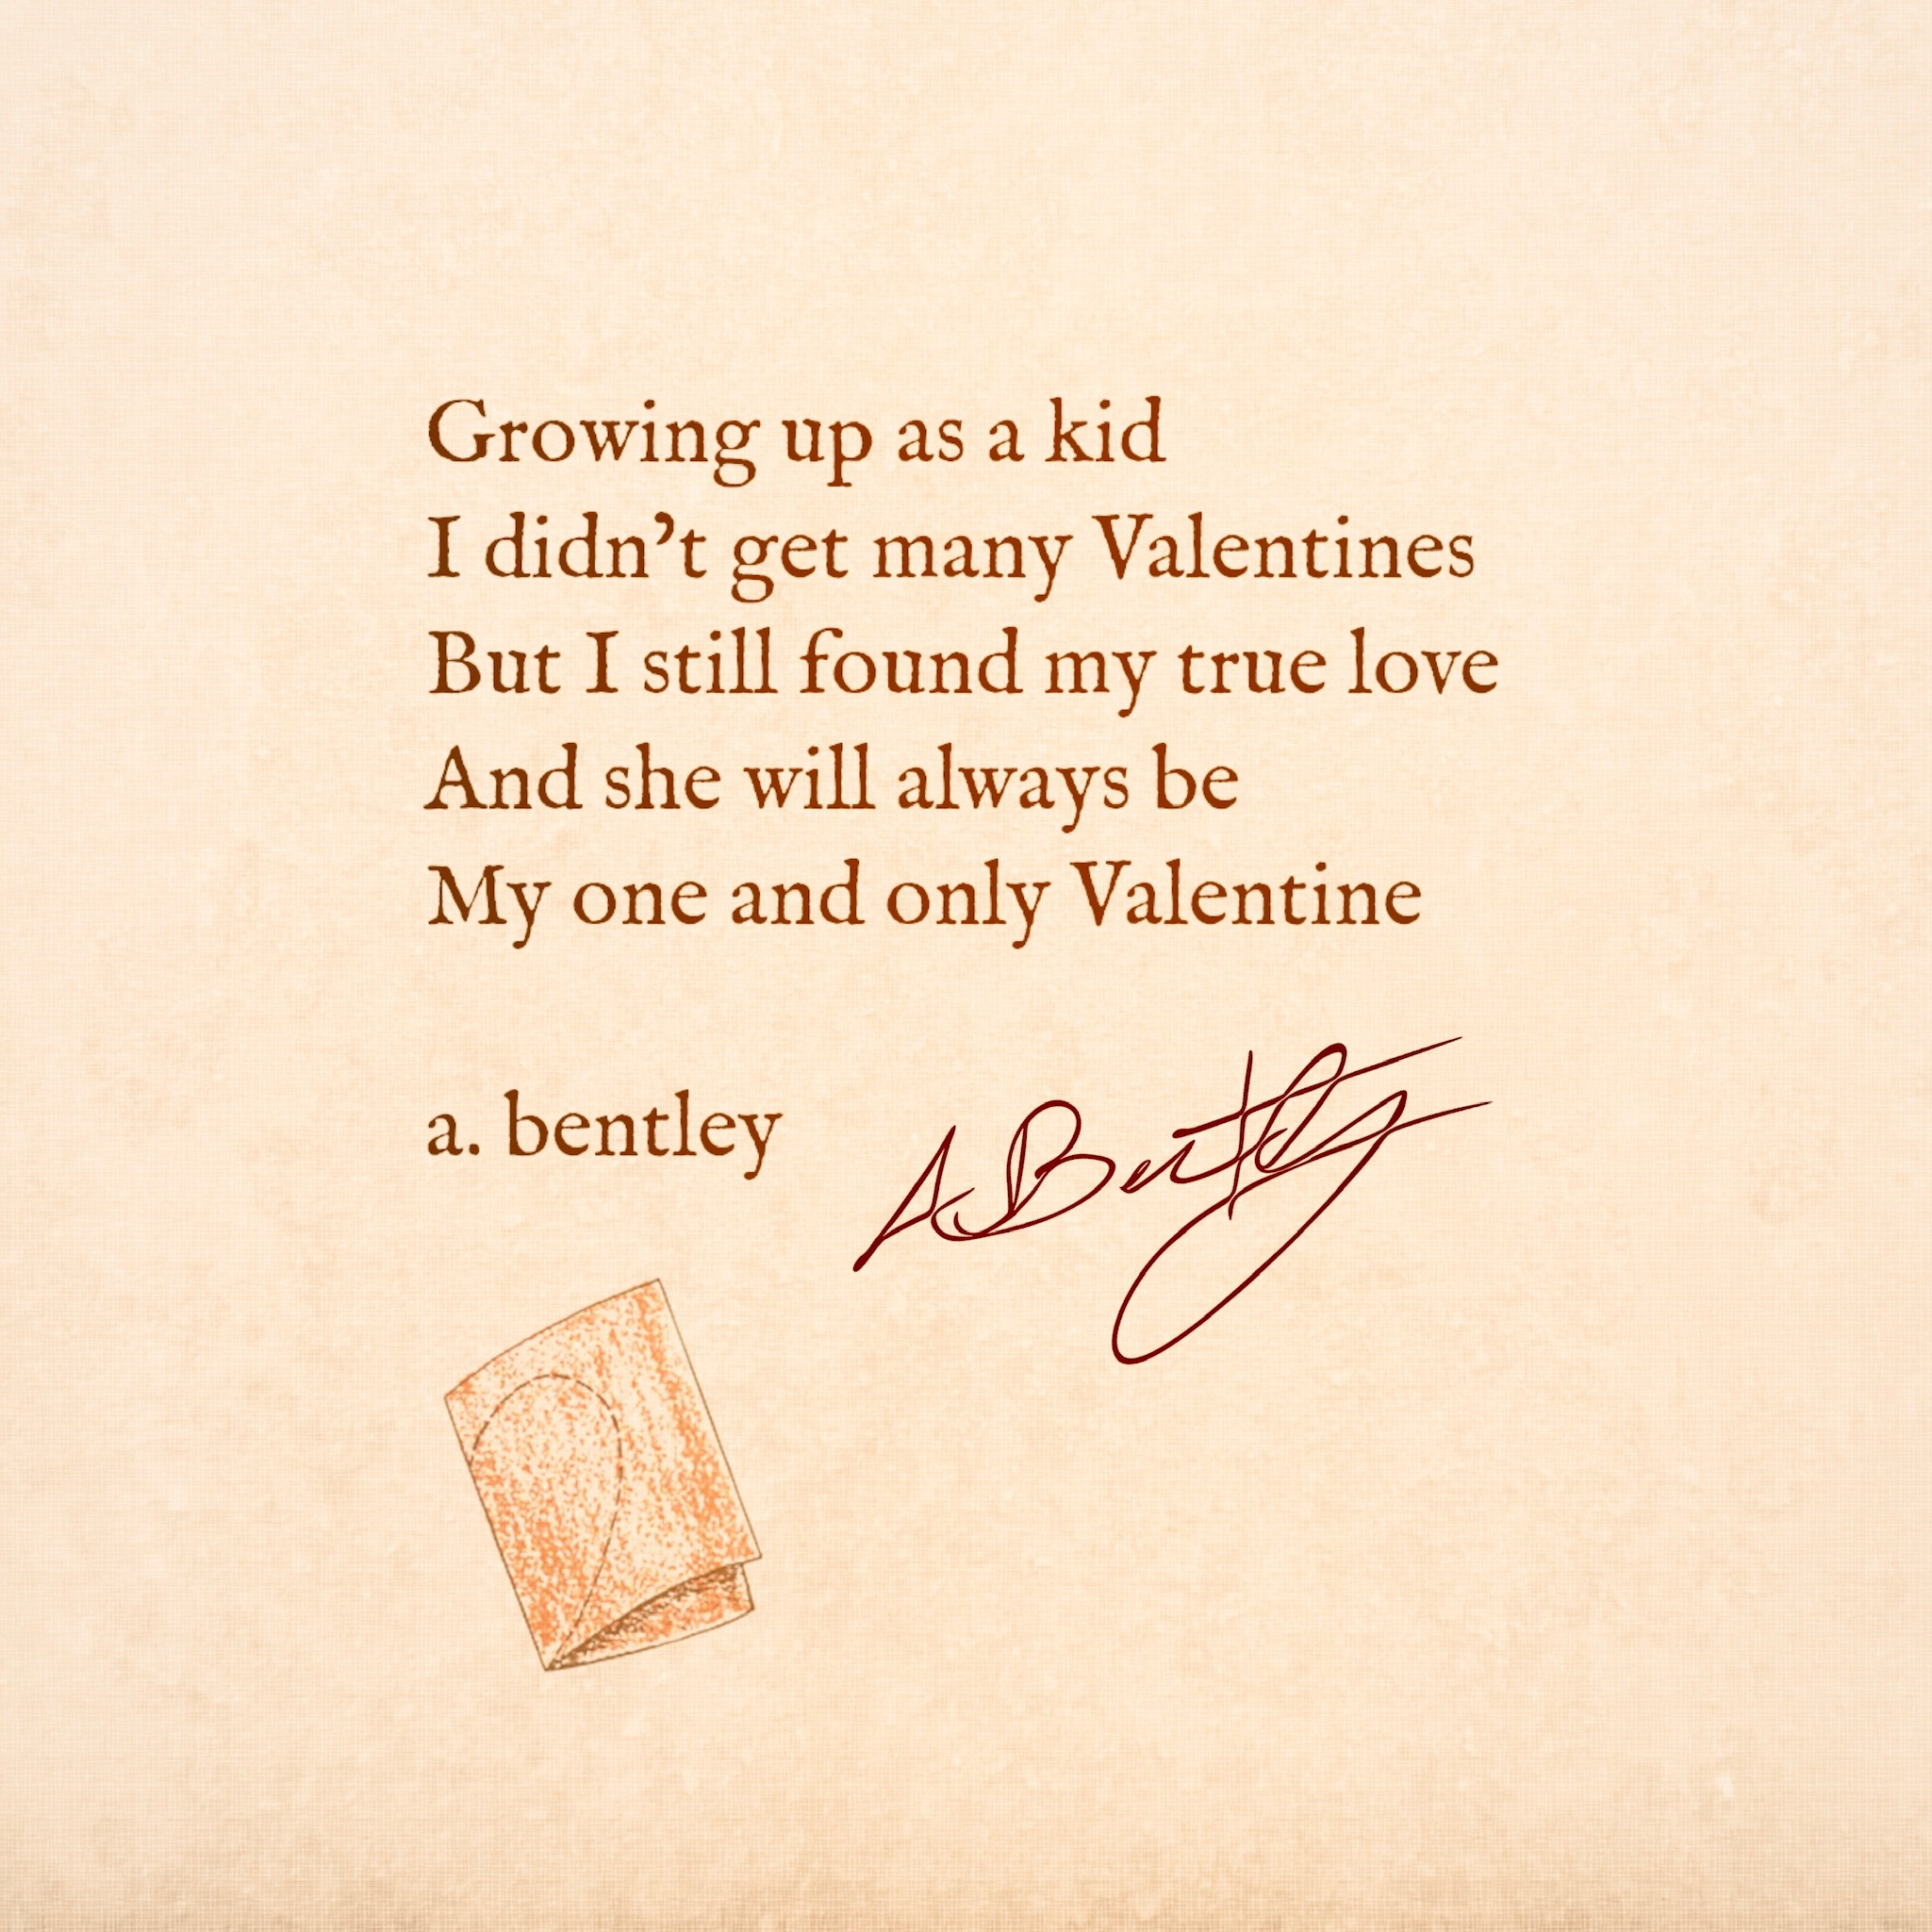 Growing up as a kid
I didn’t get many Valentines
But I still found my true love
And she will always be
My one and only Valentine
a. bentley
A Bentley